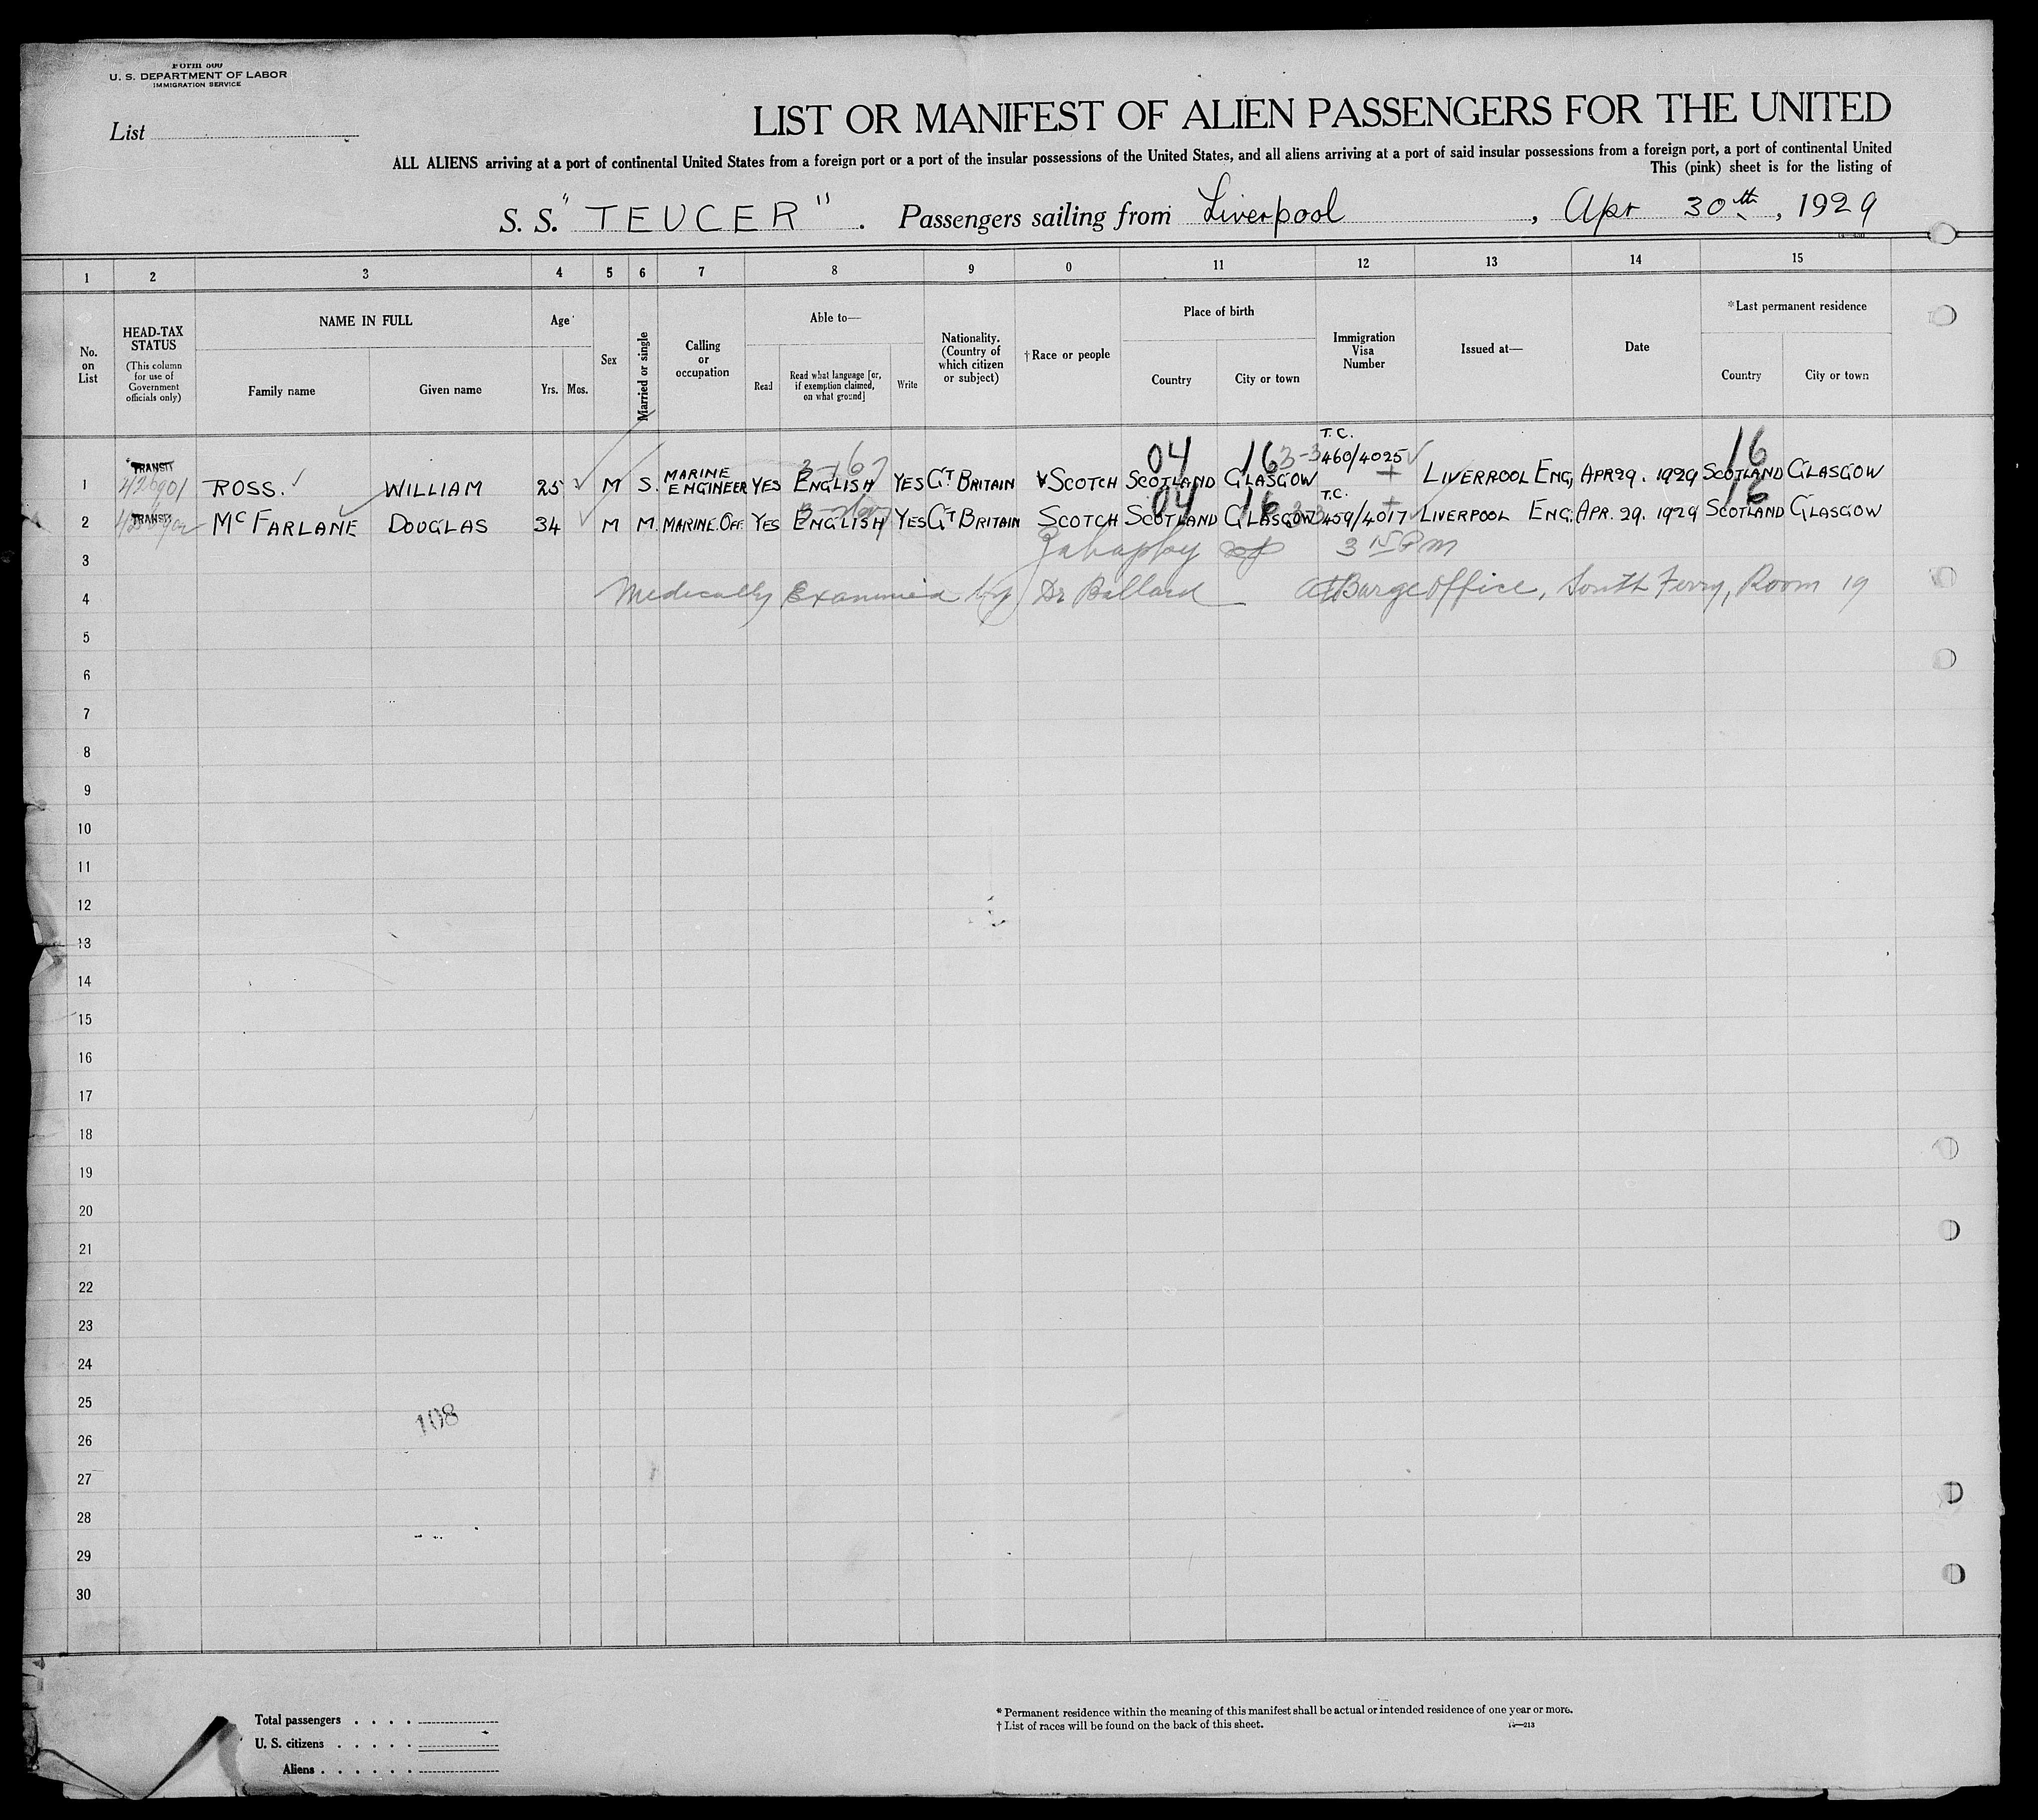 Form 500
U. S. DEPARTMENT OF LABOR
IMMIGRATION SERVICE
List
LIST OR MANIFEST OF ALIEN PASSENGERS FOR THE UNITED
ALL ALIENS arriving at a port of continental United States from a foreign port or a port of the insular possessions of the United States, and all aliens arriving at a port of said insular possessions from a foreign port, a port of continental United
This (pink) sheet is for the listing of
S. S. "TEUCER". Passengers sailing from Liverpool, Apr 30th, 1929
1 2 3 4 5 6 7 8 9 0 11 12 13 14 15
No. on List
HEAD-TAX STATUS (This column for use of Government officials only)
NAME IN FULL
Family name Given name
Age
Yrs. Mos.
Sex
Married or single
Calling or occupation
Able to—
Read Read what language [or, if exemption claimed, on what ground] Write
Nationality. (Country of which citizen or subject)
†Race or people
Place of birth
Country City or town
Immigration Visa Number
Issued at—
Date
*Last permanent residence
Country City or town
04 16 3-3 T.C. 16
1 TRANSIT ROSS. WILLIAM 25 M S. MARINE ENGINEER YES ENGLISH YES GT BRITAIN SCOTCH SCOTLAND GLASGOW 460/4025 LIVERPOOL ENG, APR 29. 1929 SCOTLAND GLASGOW
04 16 T.C. 16
2 TRANSIT McFARLANE DOUGLAS 34 M M. MARINE.OFF. YES ENGLISH YES GT BRITAIN SCOTCH SCOTLAND GLASGOW 459/4017 LIVERPOOL ENG. APR. 29. 1929 SCOTLAND GLASGOW
3 3 15 PM
4 Medically Examined by Dr Ballard at Barge Office, South Ferry, Room 19
5
6
7
8
9
10
11
12
13
14
15
16
17
18
19
20
21
22
23
24
25
108
26
27
28
29
30
Total passengers . . . .
U. S. citizens . . . . .
Aliens . . . . . .
* Permanent residence within the meaning of this manifest shall be actual or intended residence of one year or more.
† List of races will be found on the back of this sheet. 14—213